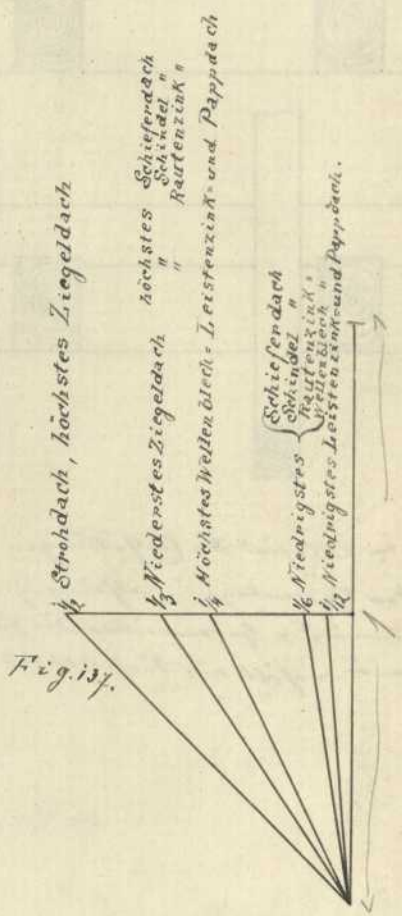 Fig. 137.
1/2 Strohdach, höchstes Ziegeldach
1/3 Niederstes Ziegeldach höchstes Schieferdach
" Schindel "
" Rautenzink "
1/4 Höchstes Wellenblech= Leistenzink= und Pappdach
1/6 Niedrigstes { Schieferdach
Schindel "
Rautenzink "
Wellenblech "
1/12 Niedrigstes Leistenzink= und Pappdach.
1